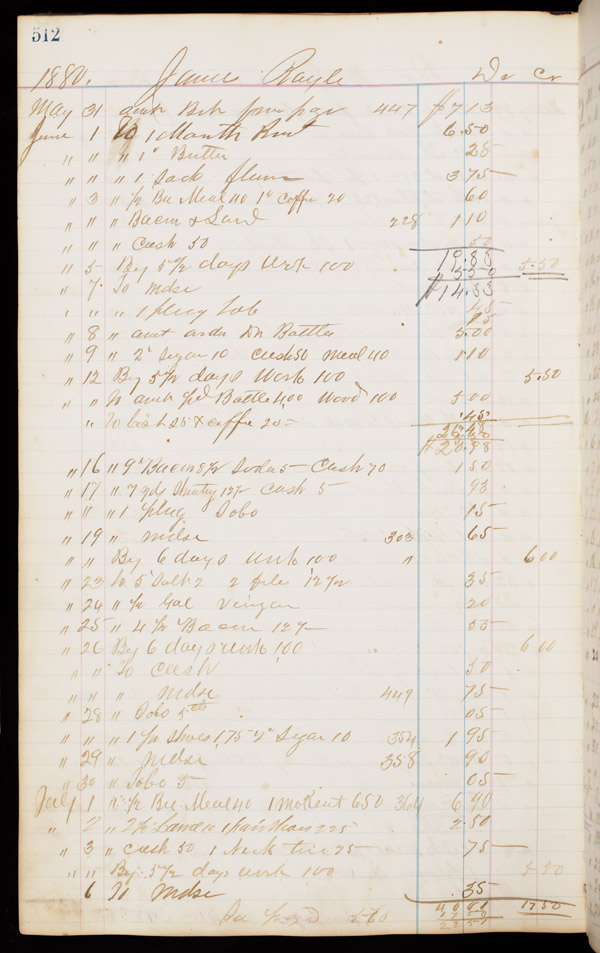 512
1880. James Royle Dr Cr
May 31 amt Bth from page 447 $7 13
June 1 To 1 Month Rent 6.50
" " " 1# Butter 25
" " " 1 Sack flour 3 75
" 3 " 1/2 Bu Meal 40 1# Coffe 20 60
" " " Bacon & Lard 228 1 10
" " " Cash 50 50
19.83
" 5 By 5 1/2 days Work 100 5.50 5.50
" 7 To Mdse $14.33
" " " 1 plug Tob 15
" 8 " amt order Dr Battle 5.00
" 9 " 2# Sugar 10 Cash 50 Meal 40 1 10
" 12 By 5 1/2 days Work 100 5.50
" " To amt pd Battle 400 Wood 100 5 00
" To Cash 25 & Coffe 20 45
$20.98
" 16 " 9# Bacon Soda 5 Cash 70 1 50
" 17 " 7 yds Shirting 12 1/2 Cash 5 93
" " " 1 plug Tobo 15
" 19 " Mdse 303 65
" " By 6 days Work 100 " 6 00
" 23 To 5# Salt 2 2 file 12 1/2 35
" 24 " 1/2 Gal Vinegar 20
" 25 " 4 1/2 Bacon 12 1/2 55
" 26 By 6 days Work 100 6 00
" " To Cash 50
" " " Mdse 449 75
" 28 " Tobo 5cts 05
" " " 1 pr Shoes 1,75 2# Sugar 10 354 1 95
" 29 " Mdse 358 90
" 30 " Tobo 5 05
July 1 " 1/2 Bu Meal 40 1 mo Rent 650 364 6 90
" 2 " 2 1/2 Lard 10 1 pair Shoes 225 2.50
" 3 " Cash 50 1 Neck tie 25 75
" " By 5 1/2 days work 100 5 50
6 To Mdse .35
560 40 01 17 50
22 51